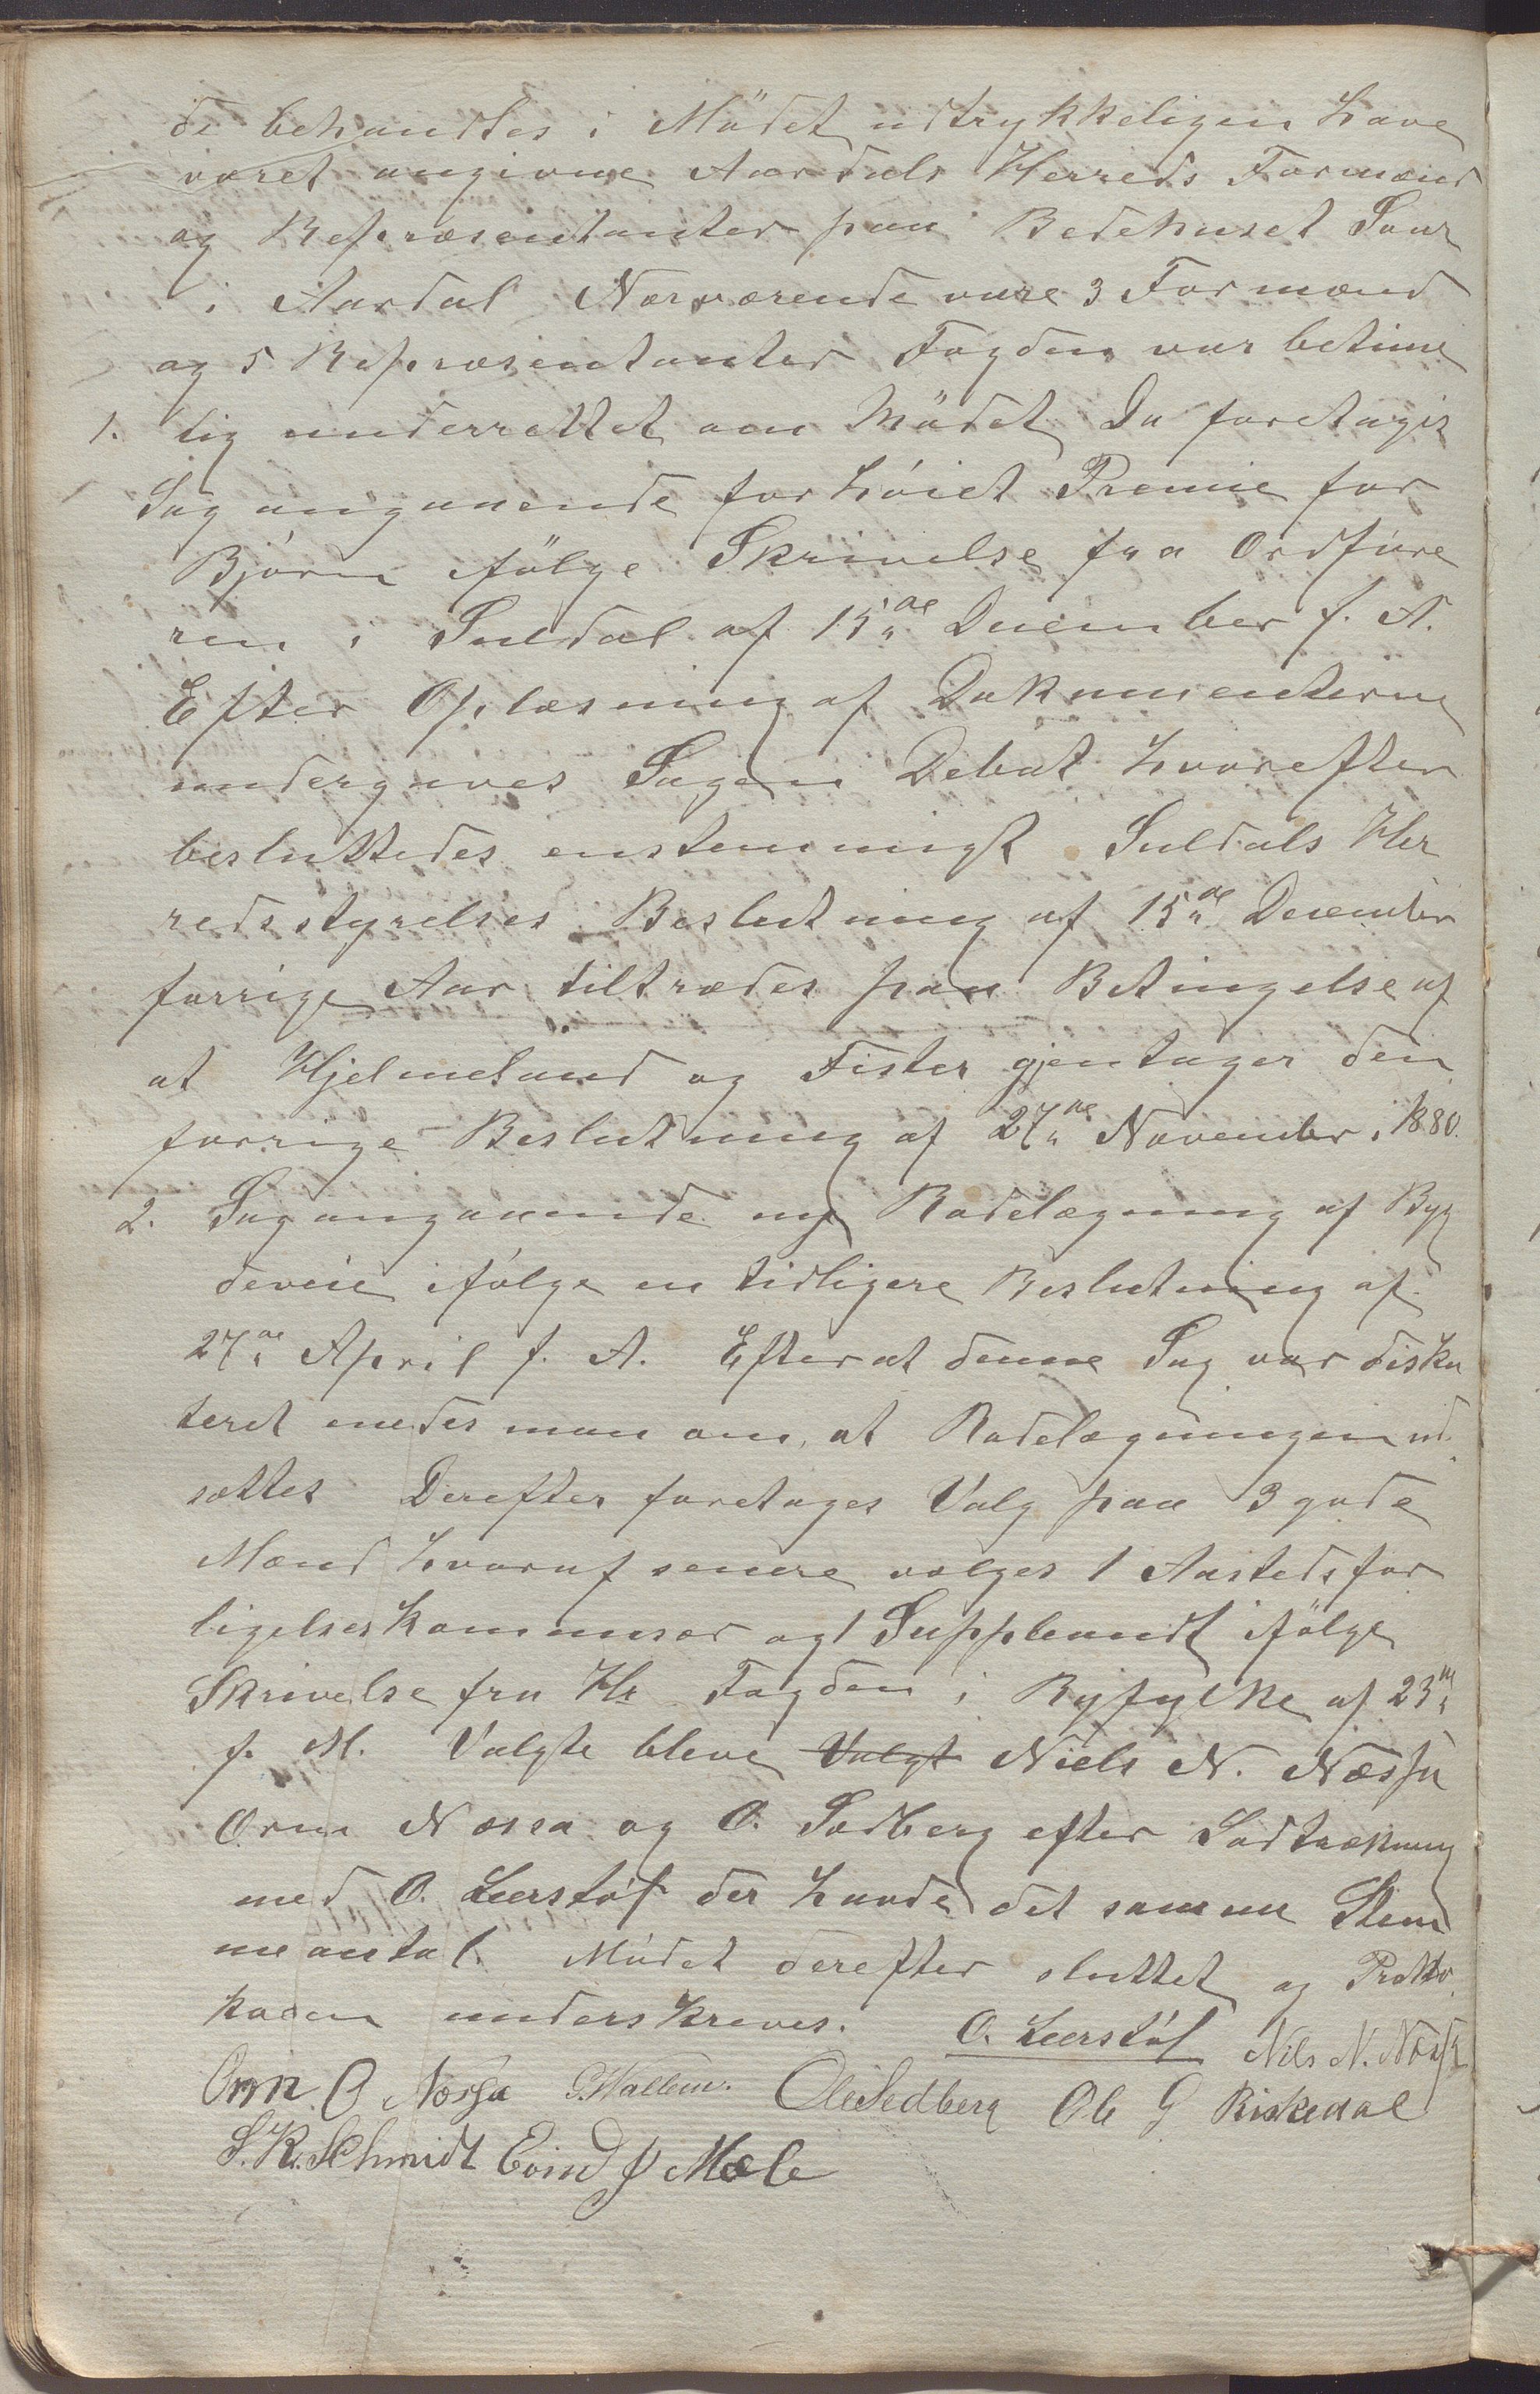 de behandles i Mödet udtrykkeligen have
været angivne Aardals Herreds Formænd
og Repræsentanter paa Bedehuset Svor
i Aardal Nærværende vare 3 Formænd
og 5 Repræsentanter Fogden var betime
1. lig underrettet om Mödet Da foretoges
Sag angaaende forhöiet Premie for
Björn ifölge Skrivelse fra Ordföre
ren i Suldal af 15de December f. A.
Efter Oplæsning af Dokumenterne
undergaves Sagen Debat hvorefter
besluttedes enstemmigt Suldals Her
redsstyrelses Beslutning af 15de December
forrige Aar tiltrædes paa Betingelse af
at Hjelmeland og Fister gjentager den
forrige Beslutning af 27de November 1880.
2. Sag angaaende ny Rodelægning af Byg
deveie ifölge en tidligere Beslutning af
27de April f. A. Efterat denne Sag var disku
teret enedes man om, at Rodelægningen ud
sættes Derefter foretoges Valg paa 3 gode
Mænd hvoraf senere vælges 1 Aastedsfor
ligelseskommisær og 1 Suppleandt ifölge
Skrivelse fra Hr Fogden i Ryfylke af 23de
f. M. Valgte bleve Valgt Niels N. Næssa
Orm Næssa og O. Sedberg efter Lodtrækning
med O. Leerstöl der havde det samme Stem
meantal. Mödet derefter sluttet og Protto
kollen underskreves. O. Leerstöl Nils N. Næssa
Orm O Næssa G. Wallem. Ole Sedberg Ole G Riskedal
S. K. Schmidt Eivind J Mæle